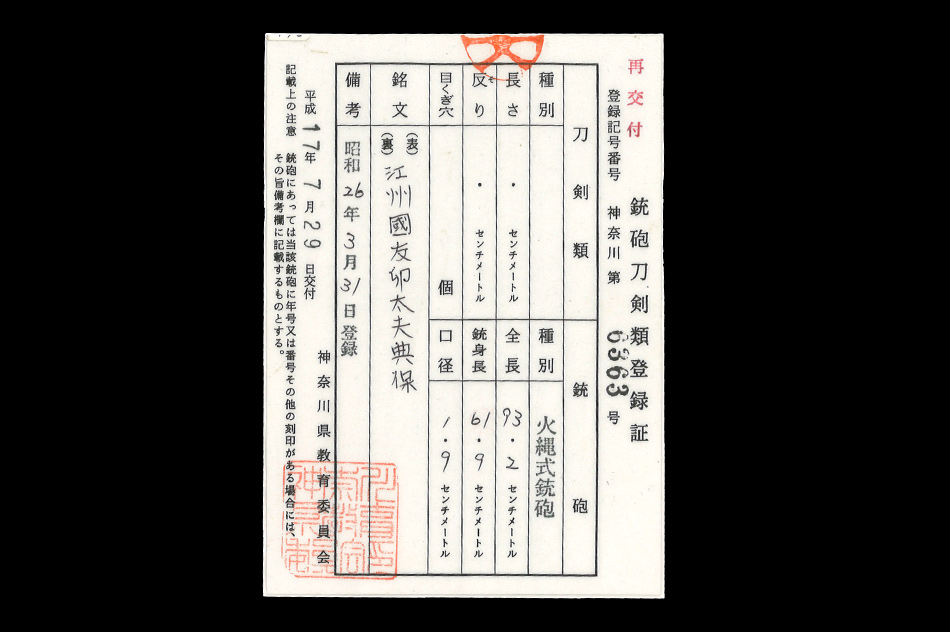 再交付
銃砲刀剣類登録証
登録記号番号 神奈川 第 6363 号
刀剣類 銃砲
種別 種別 火縄式銃砲
長さ ・ センチメートル 全長 93・2 センチメートル
反り ・ センチメートル 銃身長 61・9 センチメートル
目くぎ穴 個 口径 1・9 センチメートル
銘文 (表) (裏) 江州國友卯太夫典保
備考 昭和26年3月31日登録
神奈川県教育委員会
平成17年7月29日交付
記載上の注意 銃砲にあっては当該銃砲に年号又は番号その他の刻印がある場合には、
その旨備考欄に記載するものとする。